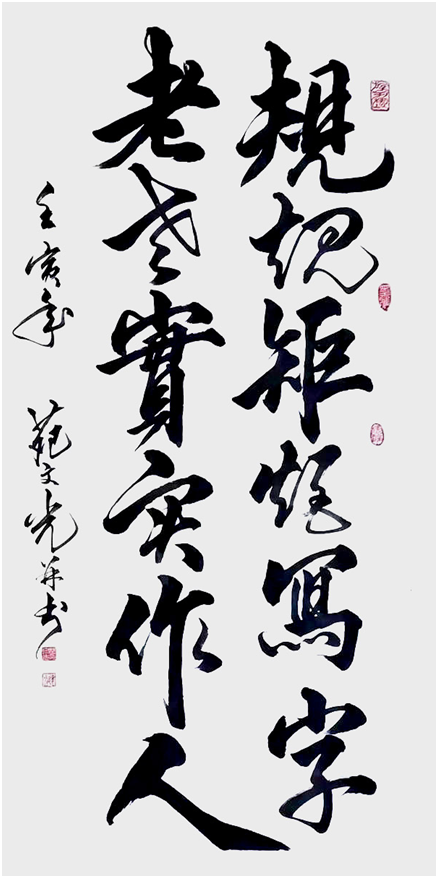 規规矩矩寫字
老老實实作人
壬寅年 范文光并书